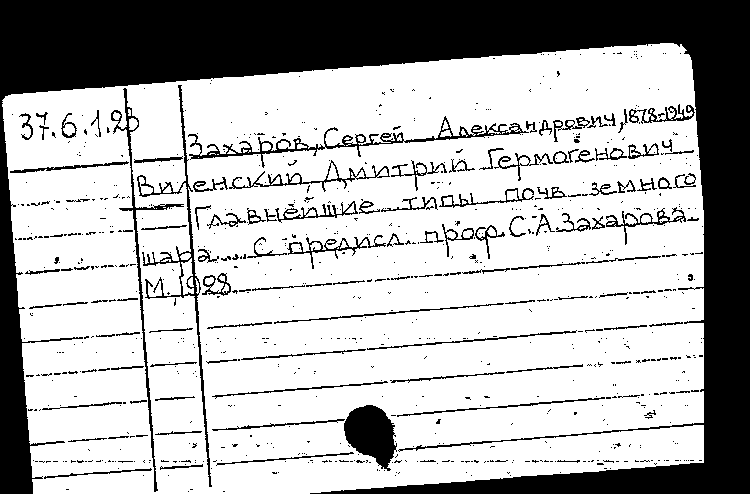 37.6.1.23
Захаров, Сергей Александрович, 1878-1949
Виленский, Дмитрий Гермогенович
Главнейшие типы почв земного
шара. С предисл. проф. С.А.Захарова
М., 1928